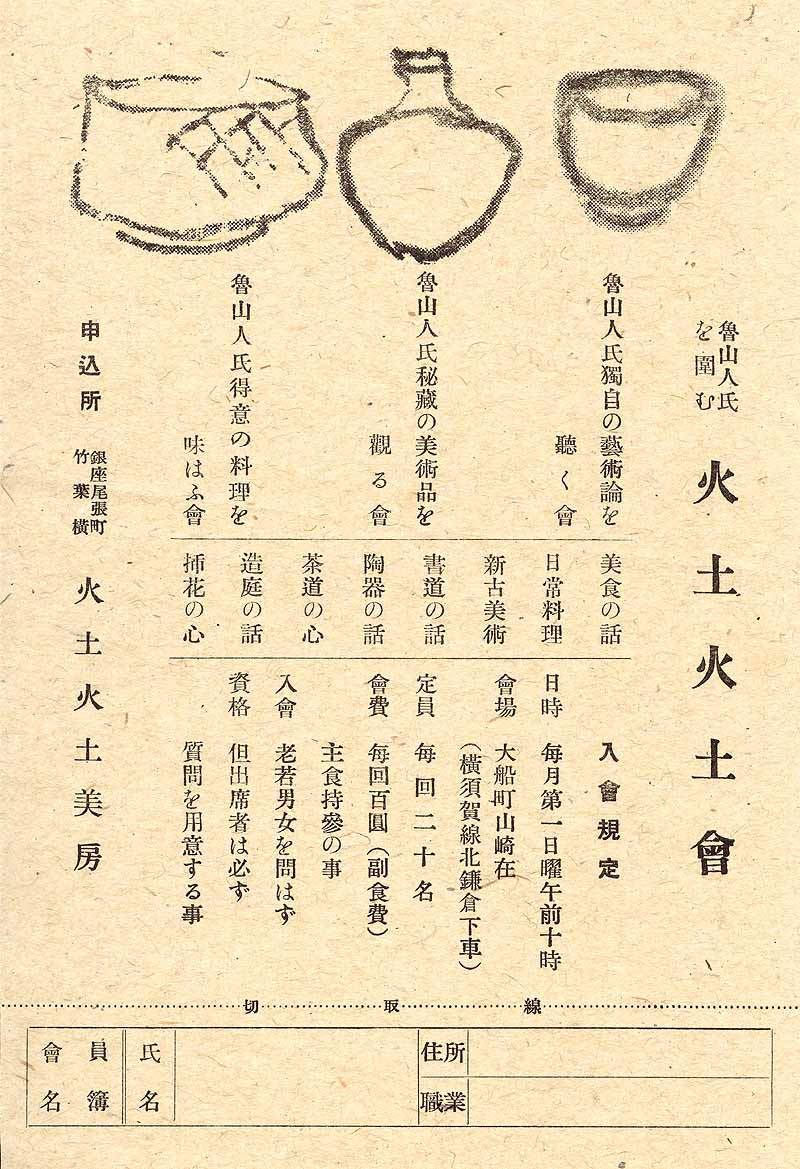 魯山人氏
を圍む
火土火土會
魯山人氏獨自の藝術論を
聽く會
魯山人氏秘藏の美術品を
觀る會
魯山人氏得意の料理を
味はふ會
美食の話
日常料理
新古美術
書道の話
陶器の話
茶道の心
造庭の話
揷花の心
入會規定
日時 每月第一日曜午前十時
會場 大船町山崎在
（橫須賀線北鎌倉下車）
定員 每回二十名
會費 每回百圓（副食費）
主食持參の事
入會 老若男女を問はず
資格 但出席者は必ず
質問を用意する事
申込所
銀座尾張町
竹葉橫
火土火土美房
切取線
會員
名簿
氏名
住所
職業